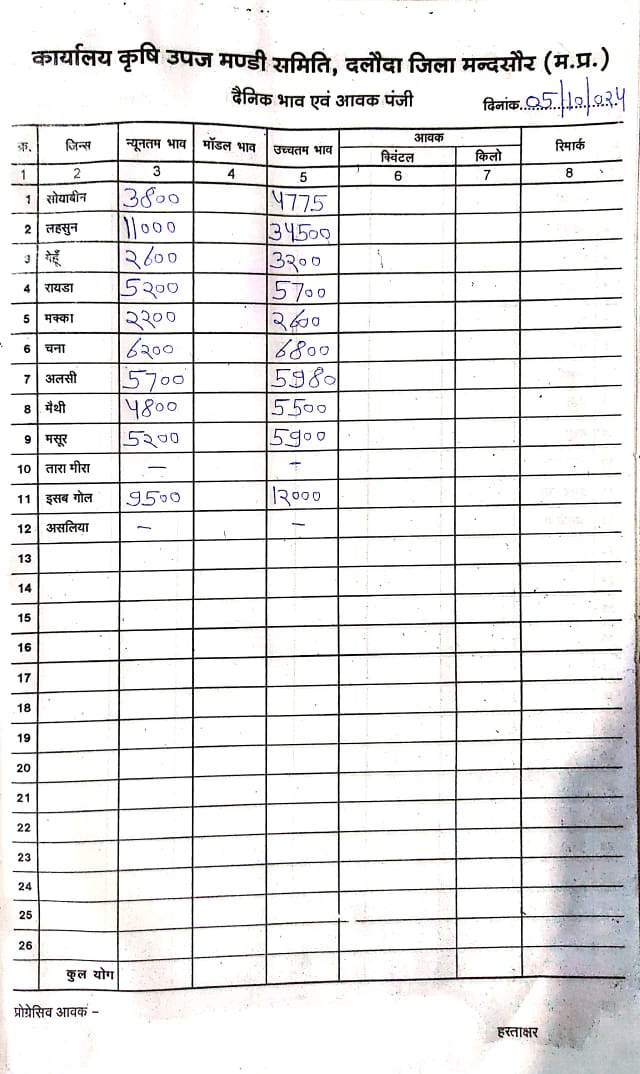 कार्यालय कृषि उपज मण्डी समिति, दलौदा जिला मन्दसौर (म.प्र.)
दैनिक भाव एवं आवक पंजी
दिनांक 05/10/024
क्र. जिन्स न्यूनतम भाव मॉडल भाव उच्चतम भाव आवक रिमार्क
क्विंटल किलो
1 2 3 4 5 6 7 8
1 सोयाबीन 3800 4775
2 लहसुन 11000 34500
3 गेहूँ 2600 3200
4 रायडा 5200 5700
5 मक्का 2200 2600
6 चना 6200 6800
7 अलसी 5700 5980
8 मैथी 4800 5500
9 मसूर 5200 5900
10 तारा मीरा – –
11 इसब गोल 9500 12000
12 असलिया – –
13
14
15
16
17
18
19
20
21
22
23
24
25
26
कुल योग
प्रोग्रेसिव आवक –
हस्ताक्षर